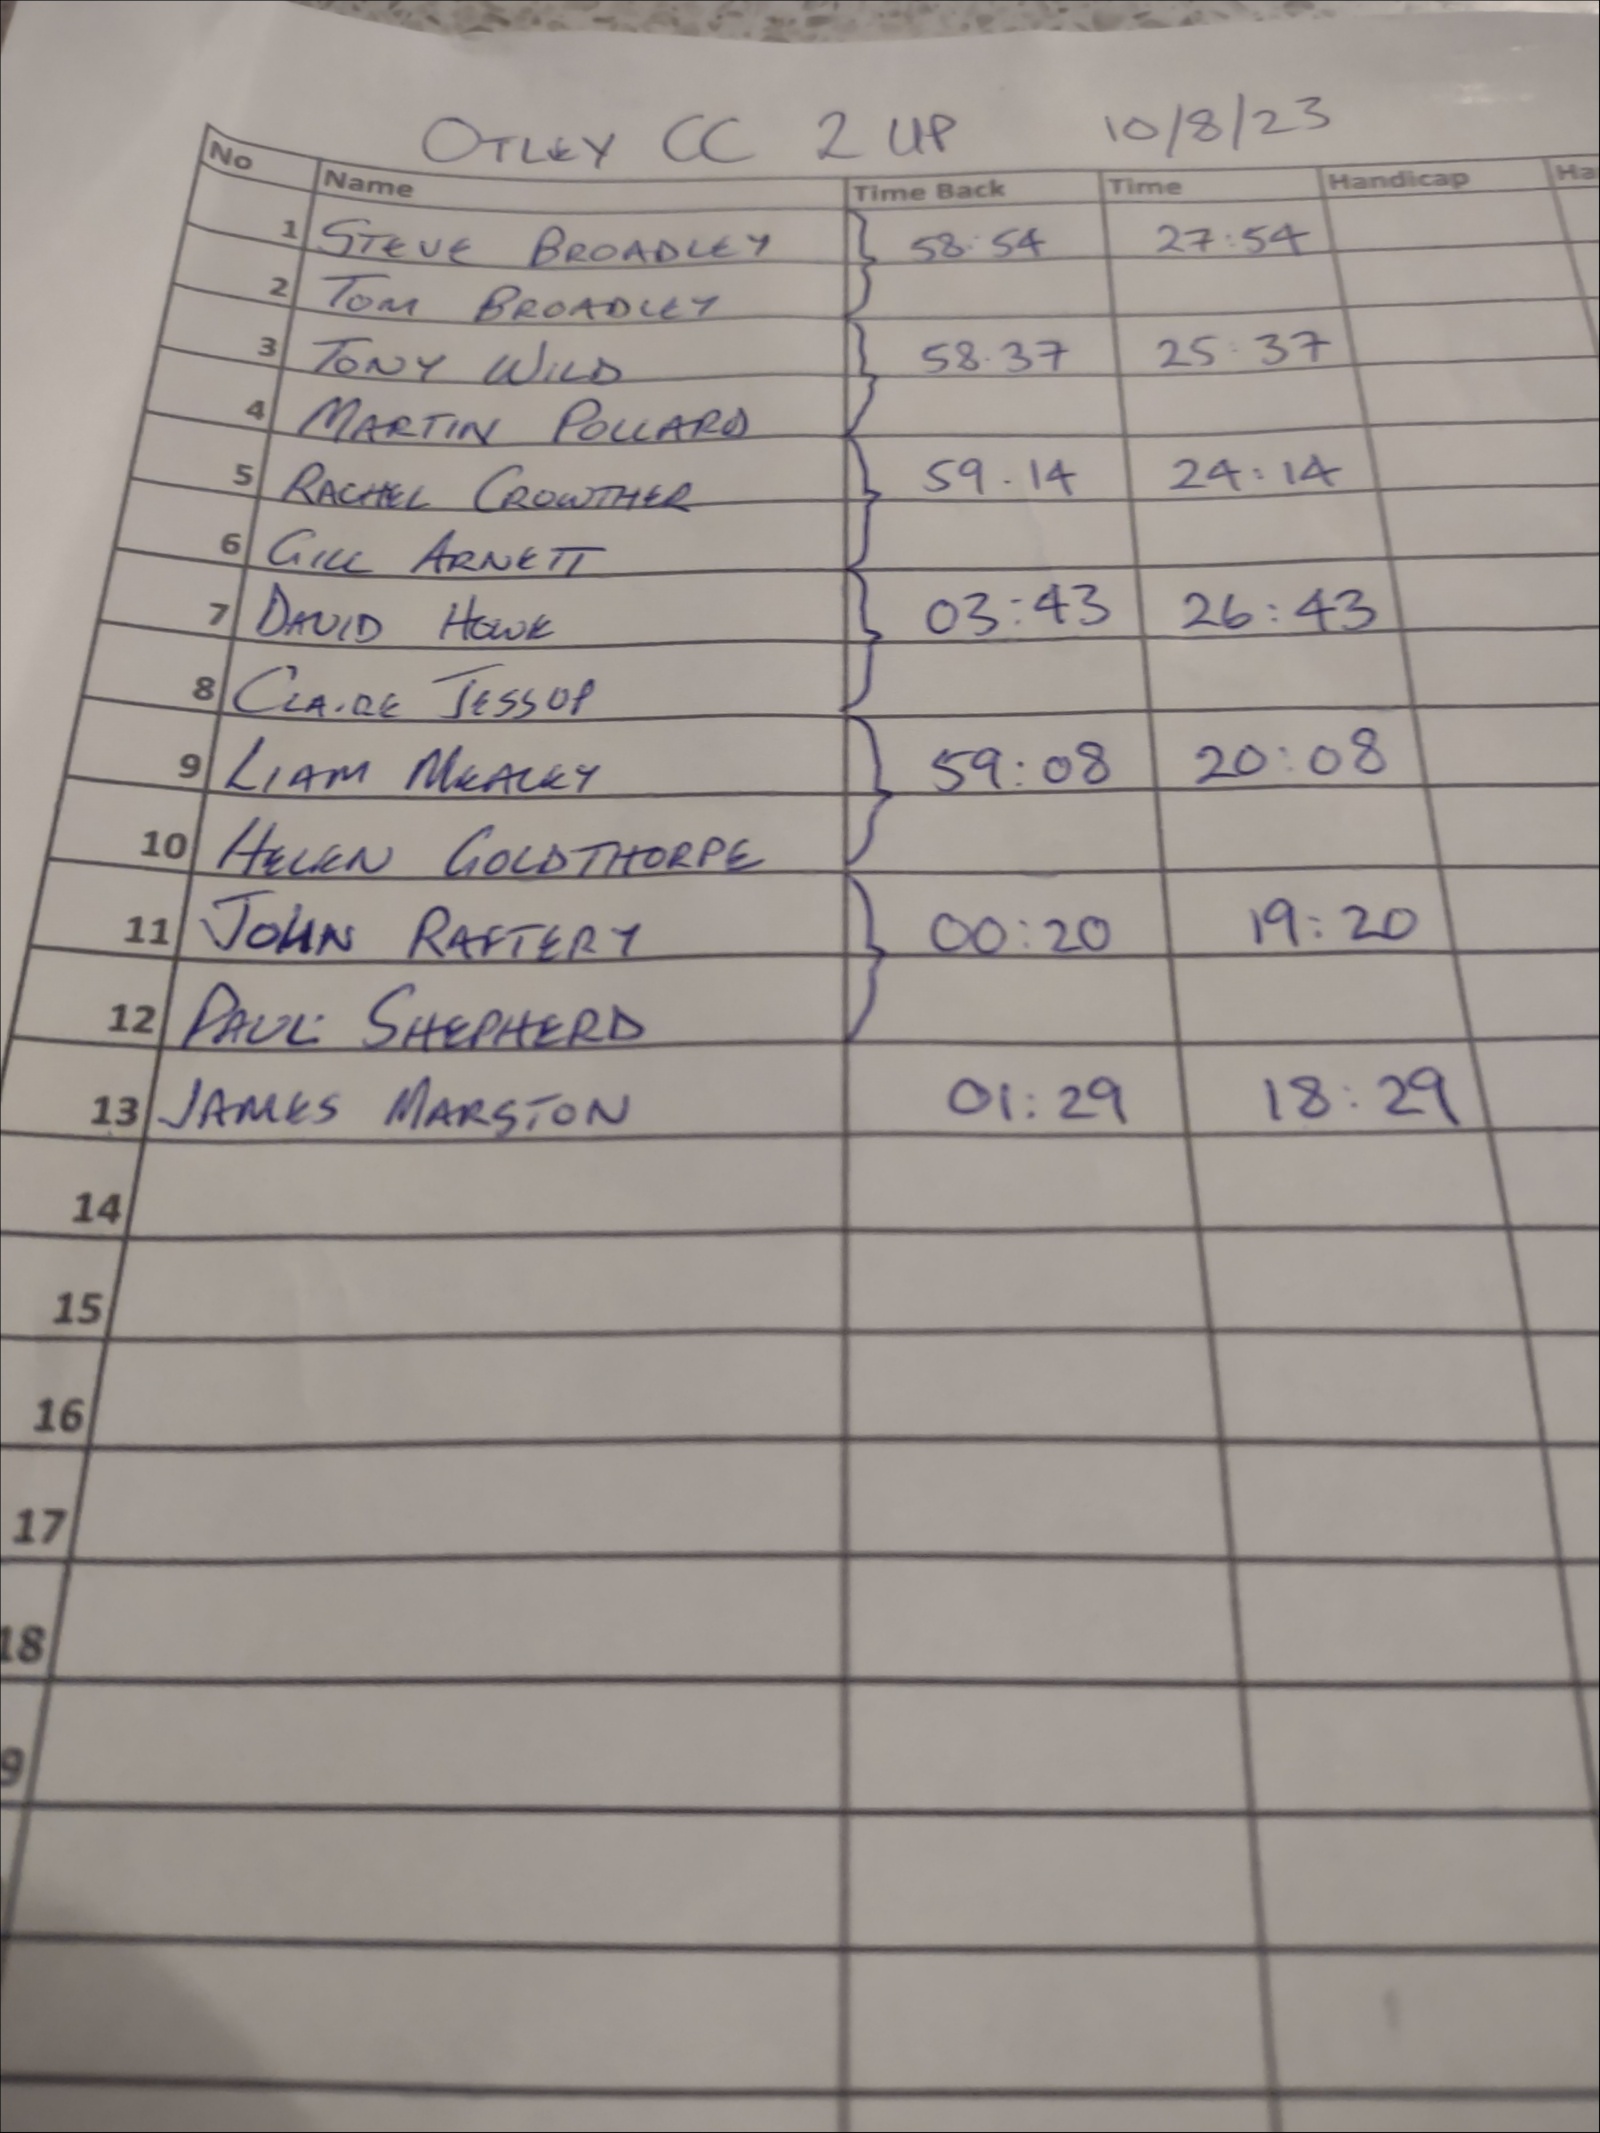 OTLEY CC 2 UP 10/8/23
No Name Time Back Time Handicap Ha
1 STEVE BROADLEY 58:54 27:54
2 TOM BROADLEY
3 TONY WILD 58.37 25:37
4 MARTIN POLLARD
5 RACHEL CROWTHER 59.14 24:14
6 GILL ARNETT
7 DAVID HOWK 03:43 26:43
8 CLAIRE JESSOP
9 LIAM MEALEY 59:08 20:08
10 HELEN GOLDTHORPE
11 JOHN RAFTERY 00:20 19:20
12 PAUL SHEPHERD
13 JAMES MARSTON 01:29 18:29
14
15
16
17
18
9